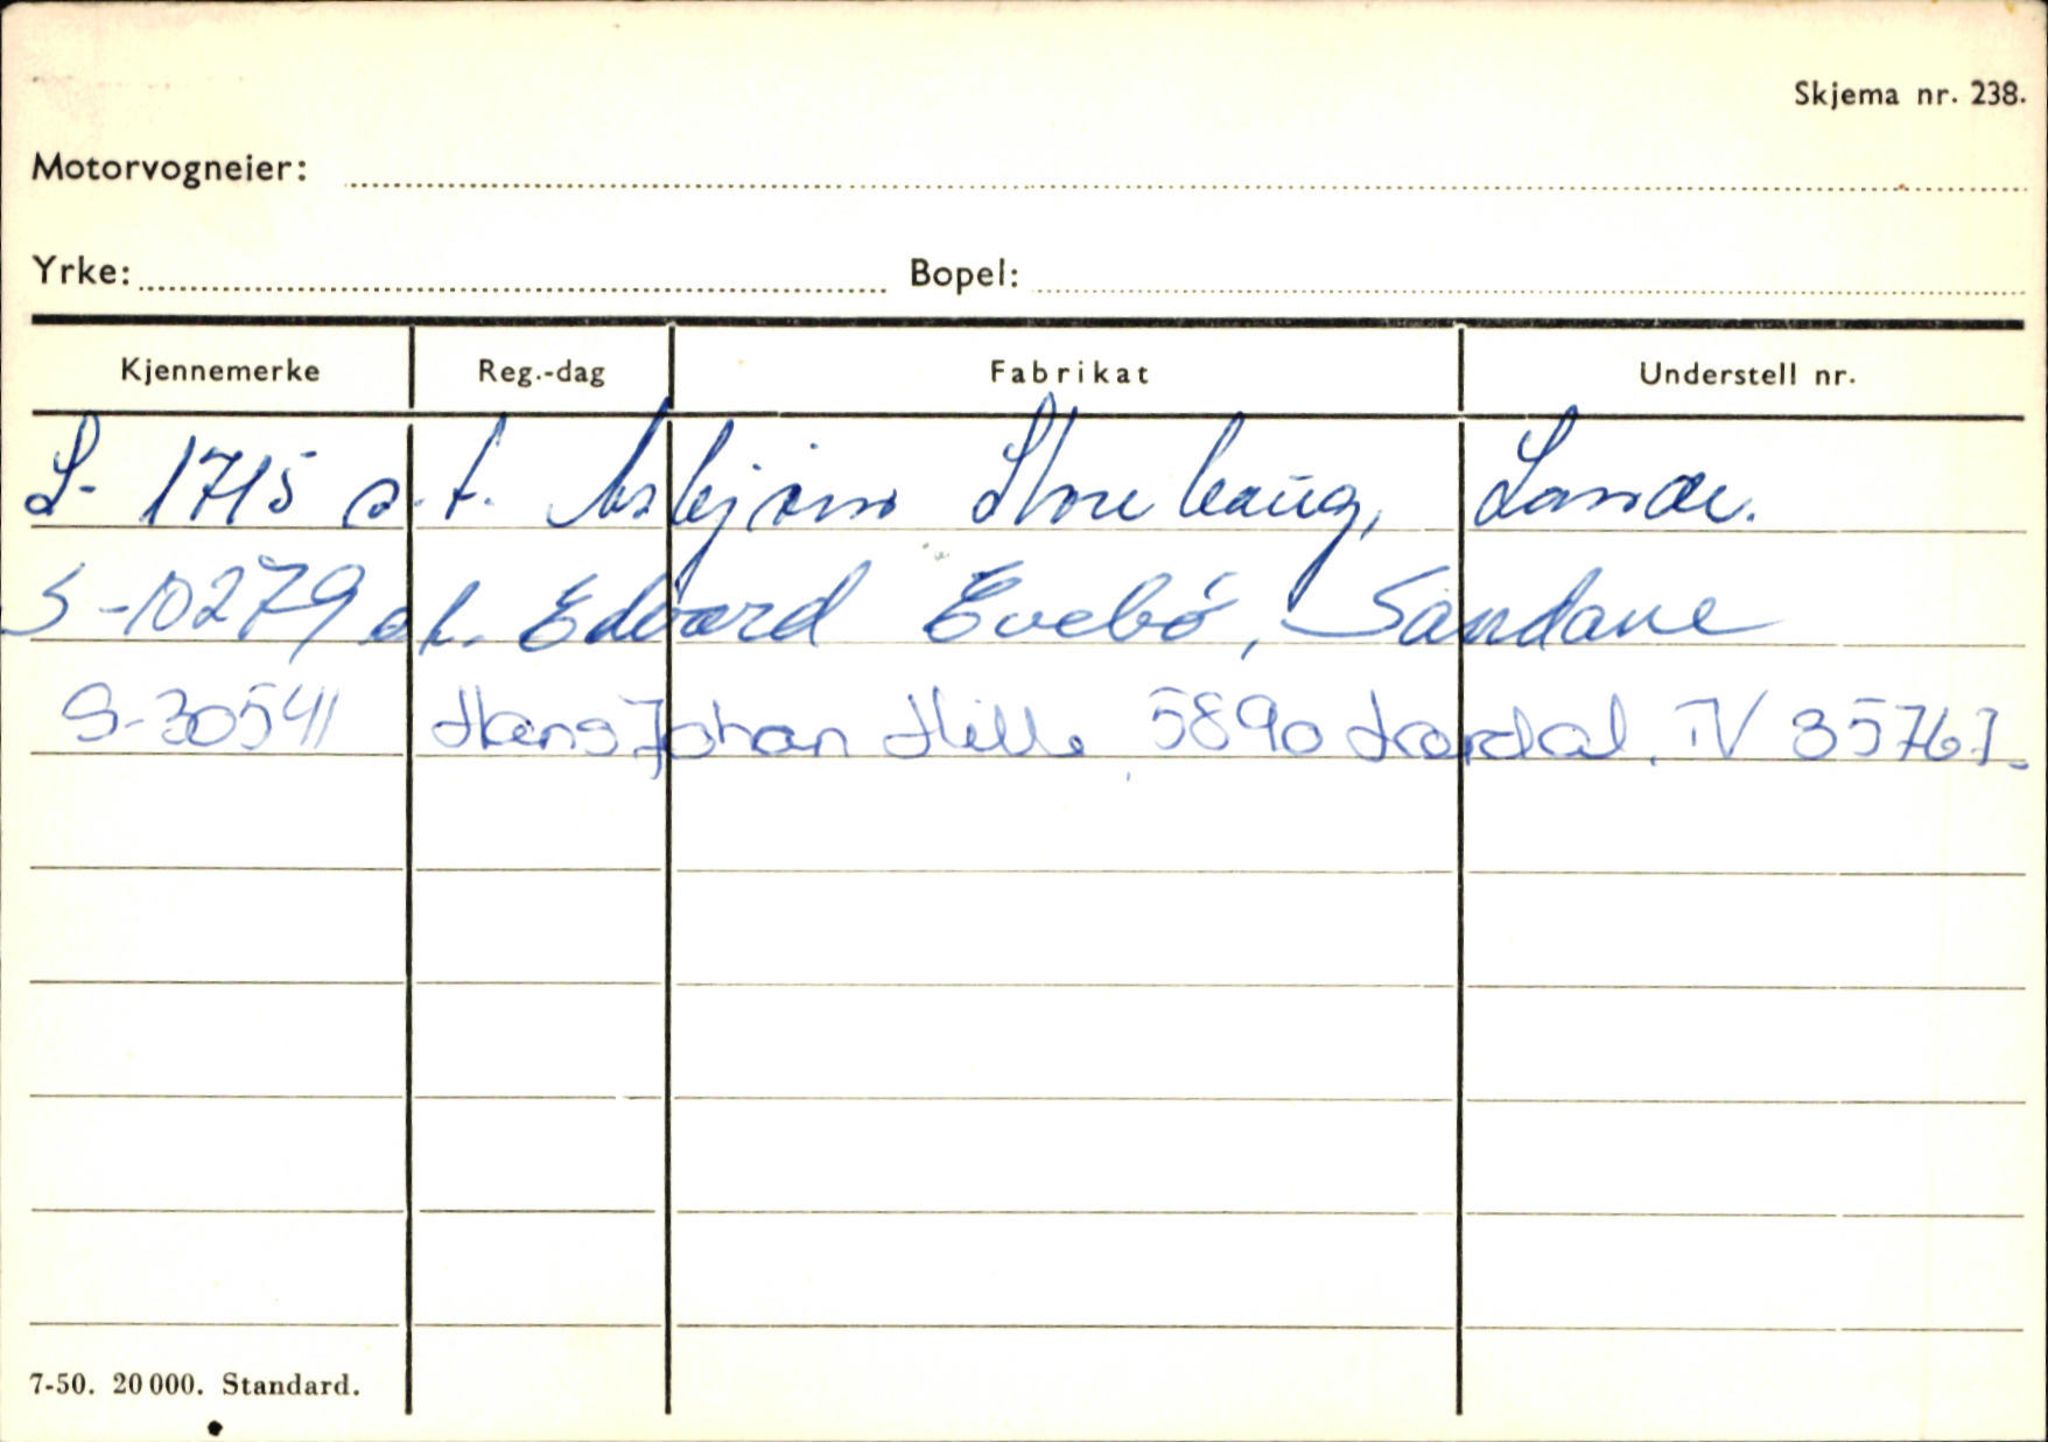 Skjema nr. 238.
Motorvogneier:
Yrke: Bopel:
Kjennemerke Reg.-dag Fabrikat Understell nr.
S- 1715 o.t. Asbjørn Storehaug,
S-10279 ot. Edvard Evebø, Sandane
S-30541 Hans Johan Hille, 5890 Lærdal. TV 35767.
7-50. 20 000. Standard.